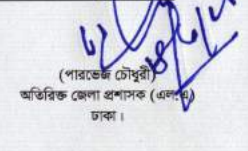 (পারভেজ চৌধুরী)
অতিরিক্ত জেলা প্রশাসক (এল.এ)
ঢাকা।